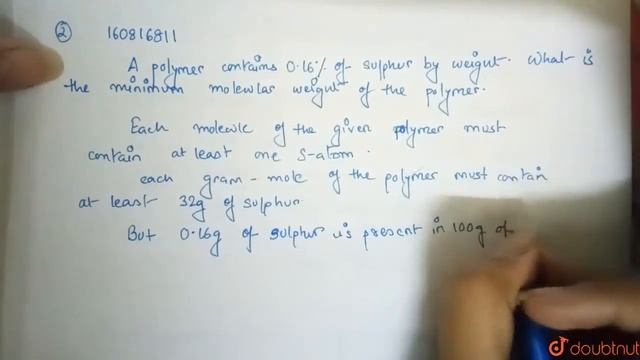 ② 160816811
A polymer contains 0.16% of sulphur by weight. What is
the minimum molecular weight of the polymer.
Each molecule of the given polymer must
contain at least one S-atom.
each gram-mole of the polymer must contain
at least 32g of sulphur.
But 0.16g of sulphur is present in 100g of
doubtnut